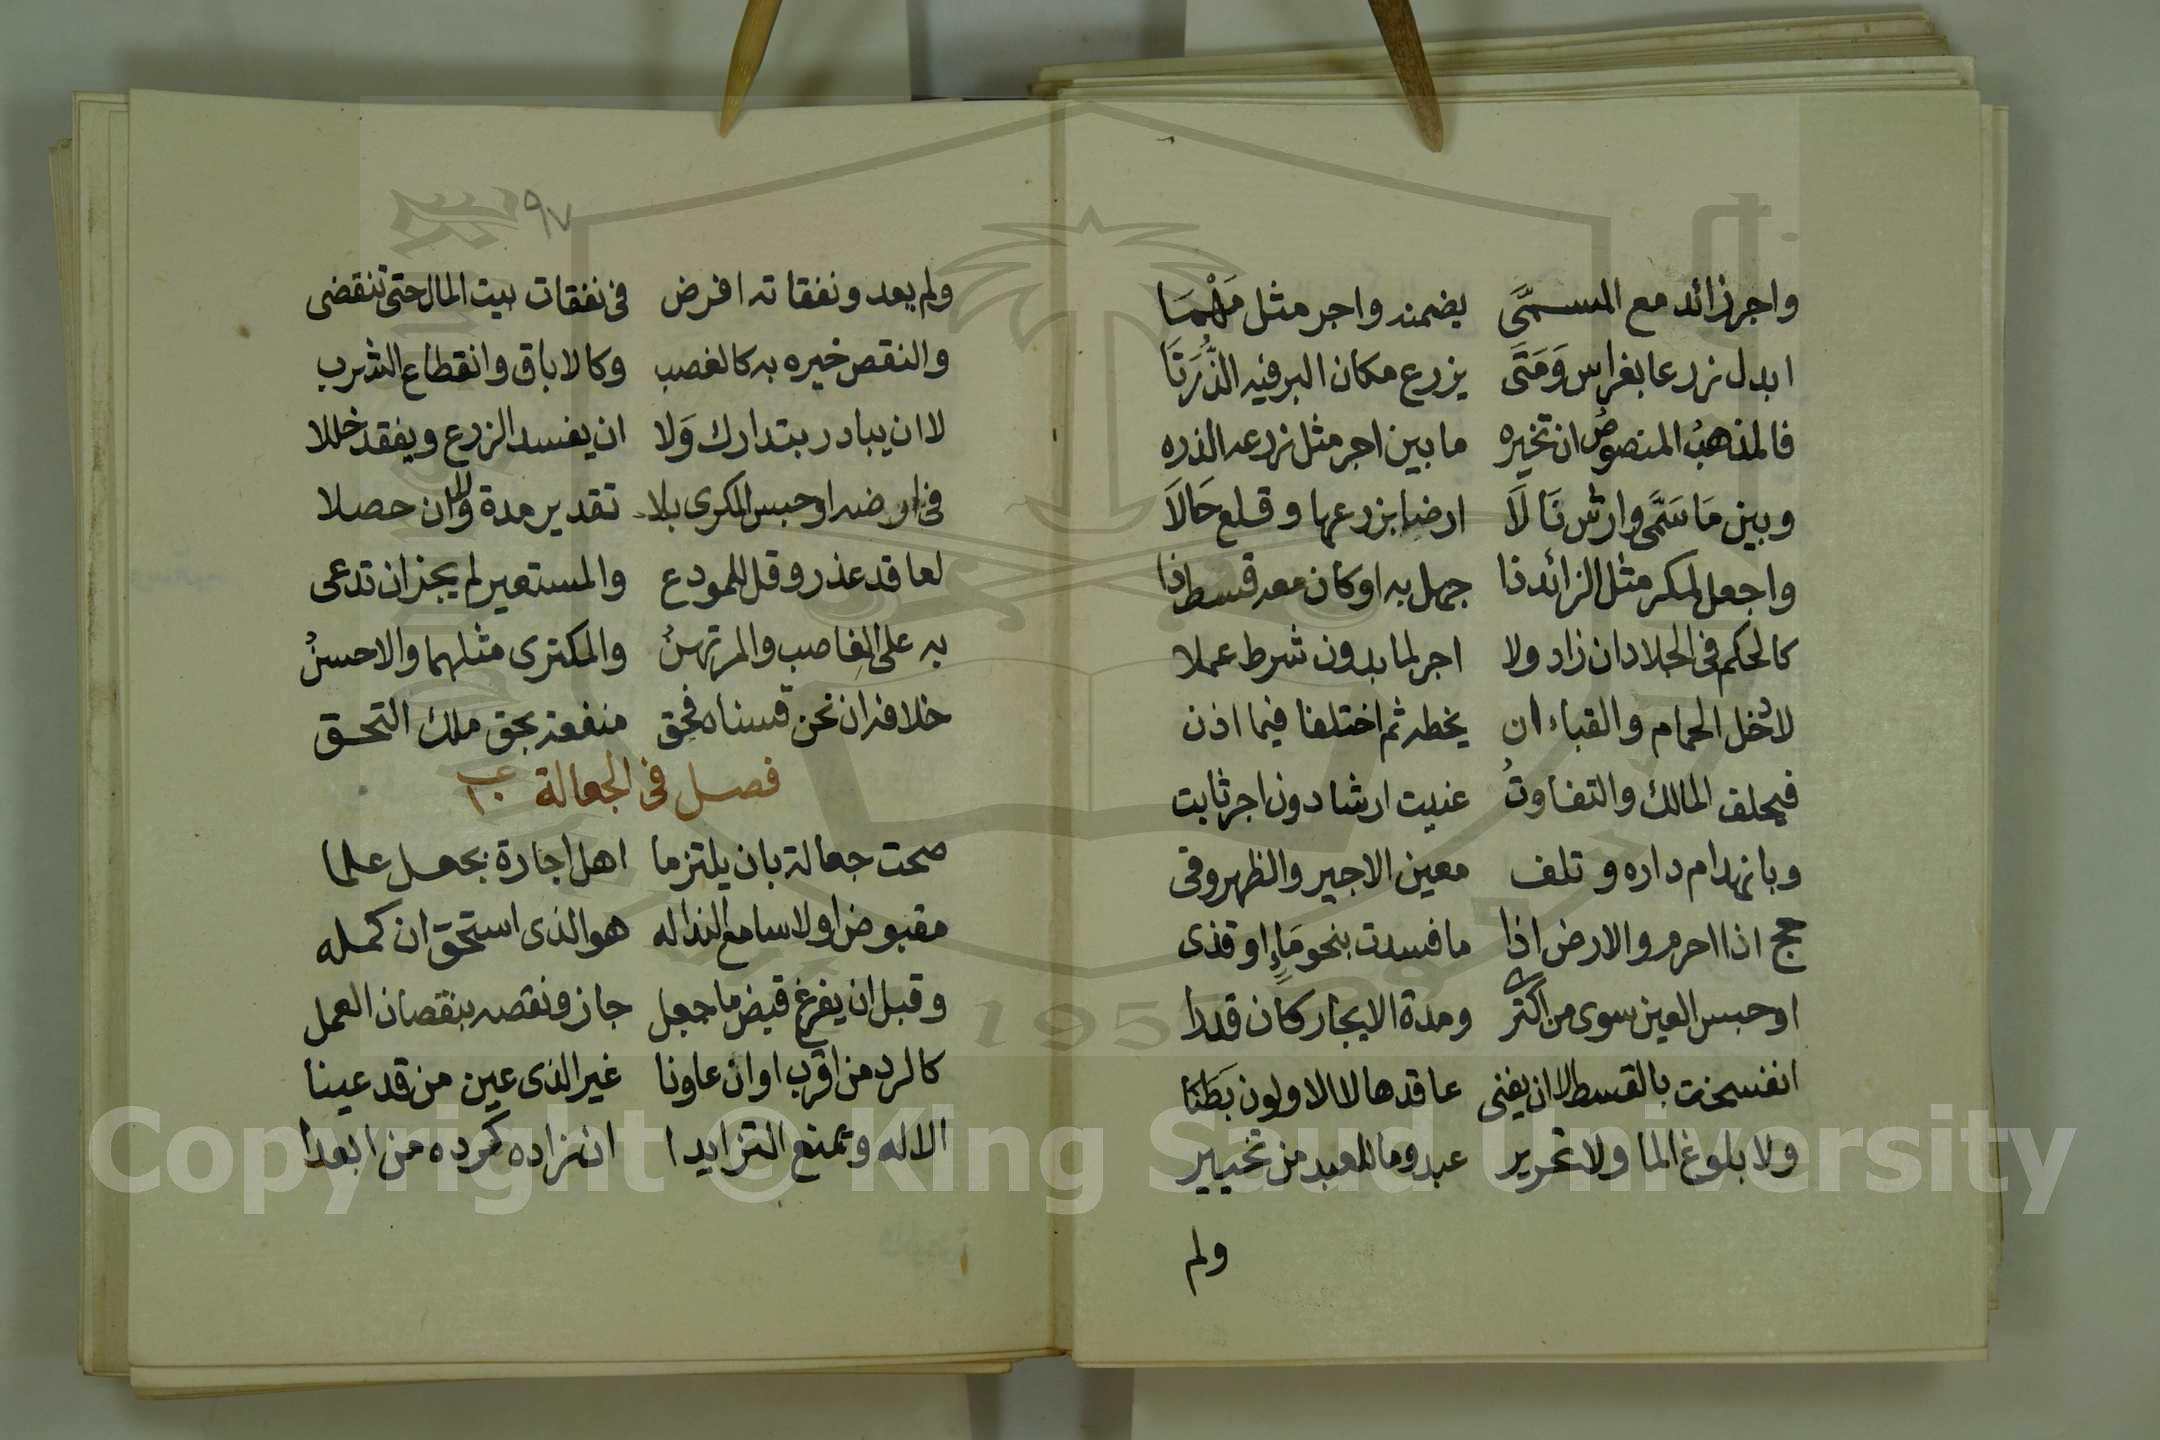 واجر زائد مع المسمَّى يضمنه واجر مثل مَهْمَا
ابدل زرعا بغراس وَمَتَى يزرع مكان البر فيه الذُّرَتَا
فالمذهبُ المنصوصُ ان تخيره ما بين اجر مثل زرعه الذره
وبين مَا سَمَّى وارش نَالَا ارضا بزرعها وقلع حَالَا
واجعل لمكر مثل الزائد ذا جهل به او كان معه قسط ذا
كالحكم فى الجلاد ان زاد ولا اجر لما بدون شرط عملا
لا دُخل الحمام والقباء ان يخطه ثم اختلفا فيما اذن
فيحلف المالك والتفاوتُ عنيت ارشا دون اجر ثابت
وبانهدام داره وتلف معين الاجير والظهر وفى
حج اذا احرم والارض اذا ما فسدت بنحو مَاءٍ او قذى
او حبس العين سوى من اكترى ومدة الايجار كان قدرا
انفسخت بالقسط لا ان يفنى عاقدها لا الاولون بَطَنَا
ولا بلوغ الما ولا تحرير عبد وما للعبد من تخيير
ولم
٩٧
ولم يعد ونفقاته افرض فى نفقات بيت المال حتى تنقضى
والنقص خيره به كالغصب وكالاباق وانقطاع الشرب
لا ان يبادر بتدارك وَلا ان يفسد الزرع ويفقد خللا
فى ارضه او حبس المكرى بلا تقدير مدة وان حصلا
لعاقد عذر وقل للمودع والمستعير لم يجز ان تدعى
به على الغاصب والمرتهنُ والمكترى مثلهما والاحسنُ
خلافه ان نحن قسناه فحق منفعة بحق ملك التحق
فصل فى الجعالة
صحت جعالة بان يلتزما اهل اجارة بجعل علما
مقبوضا او لا سامع النداله هو الذى استحق ان كمله
وقبل ان يفرغ قبض ما جعل جاز ونقصه بنقصان العمل
كالرد من اقرب او ان عاونا غير الذى عين من قد عينا
الا له وتمنع التزايدا ان زاده كرده من ابعدا
Copyright © King Saud University
1957